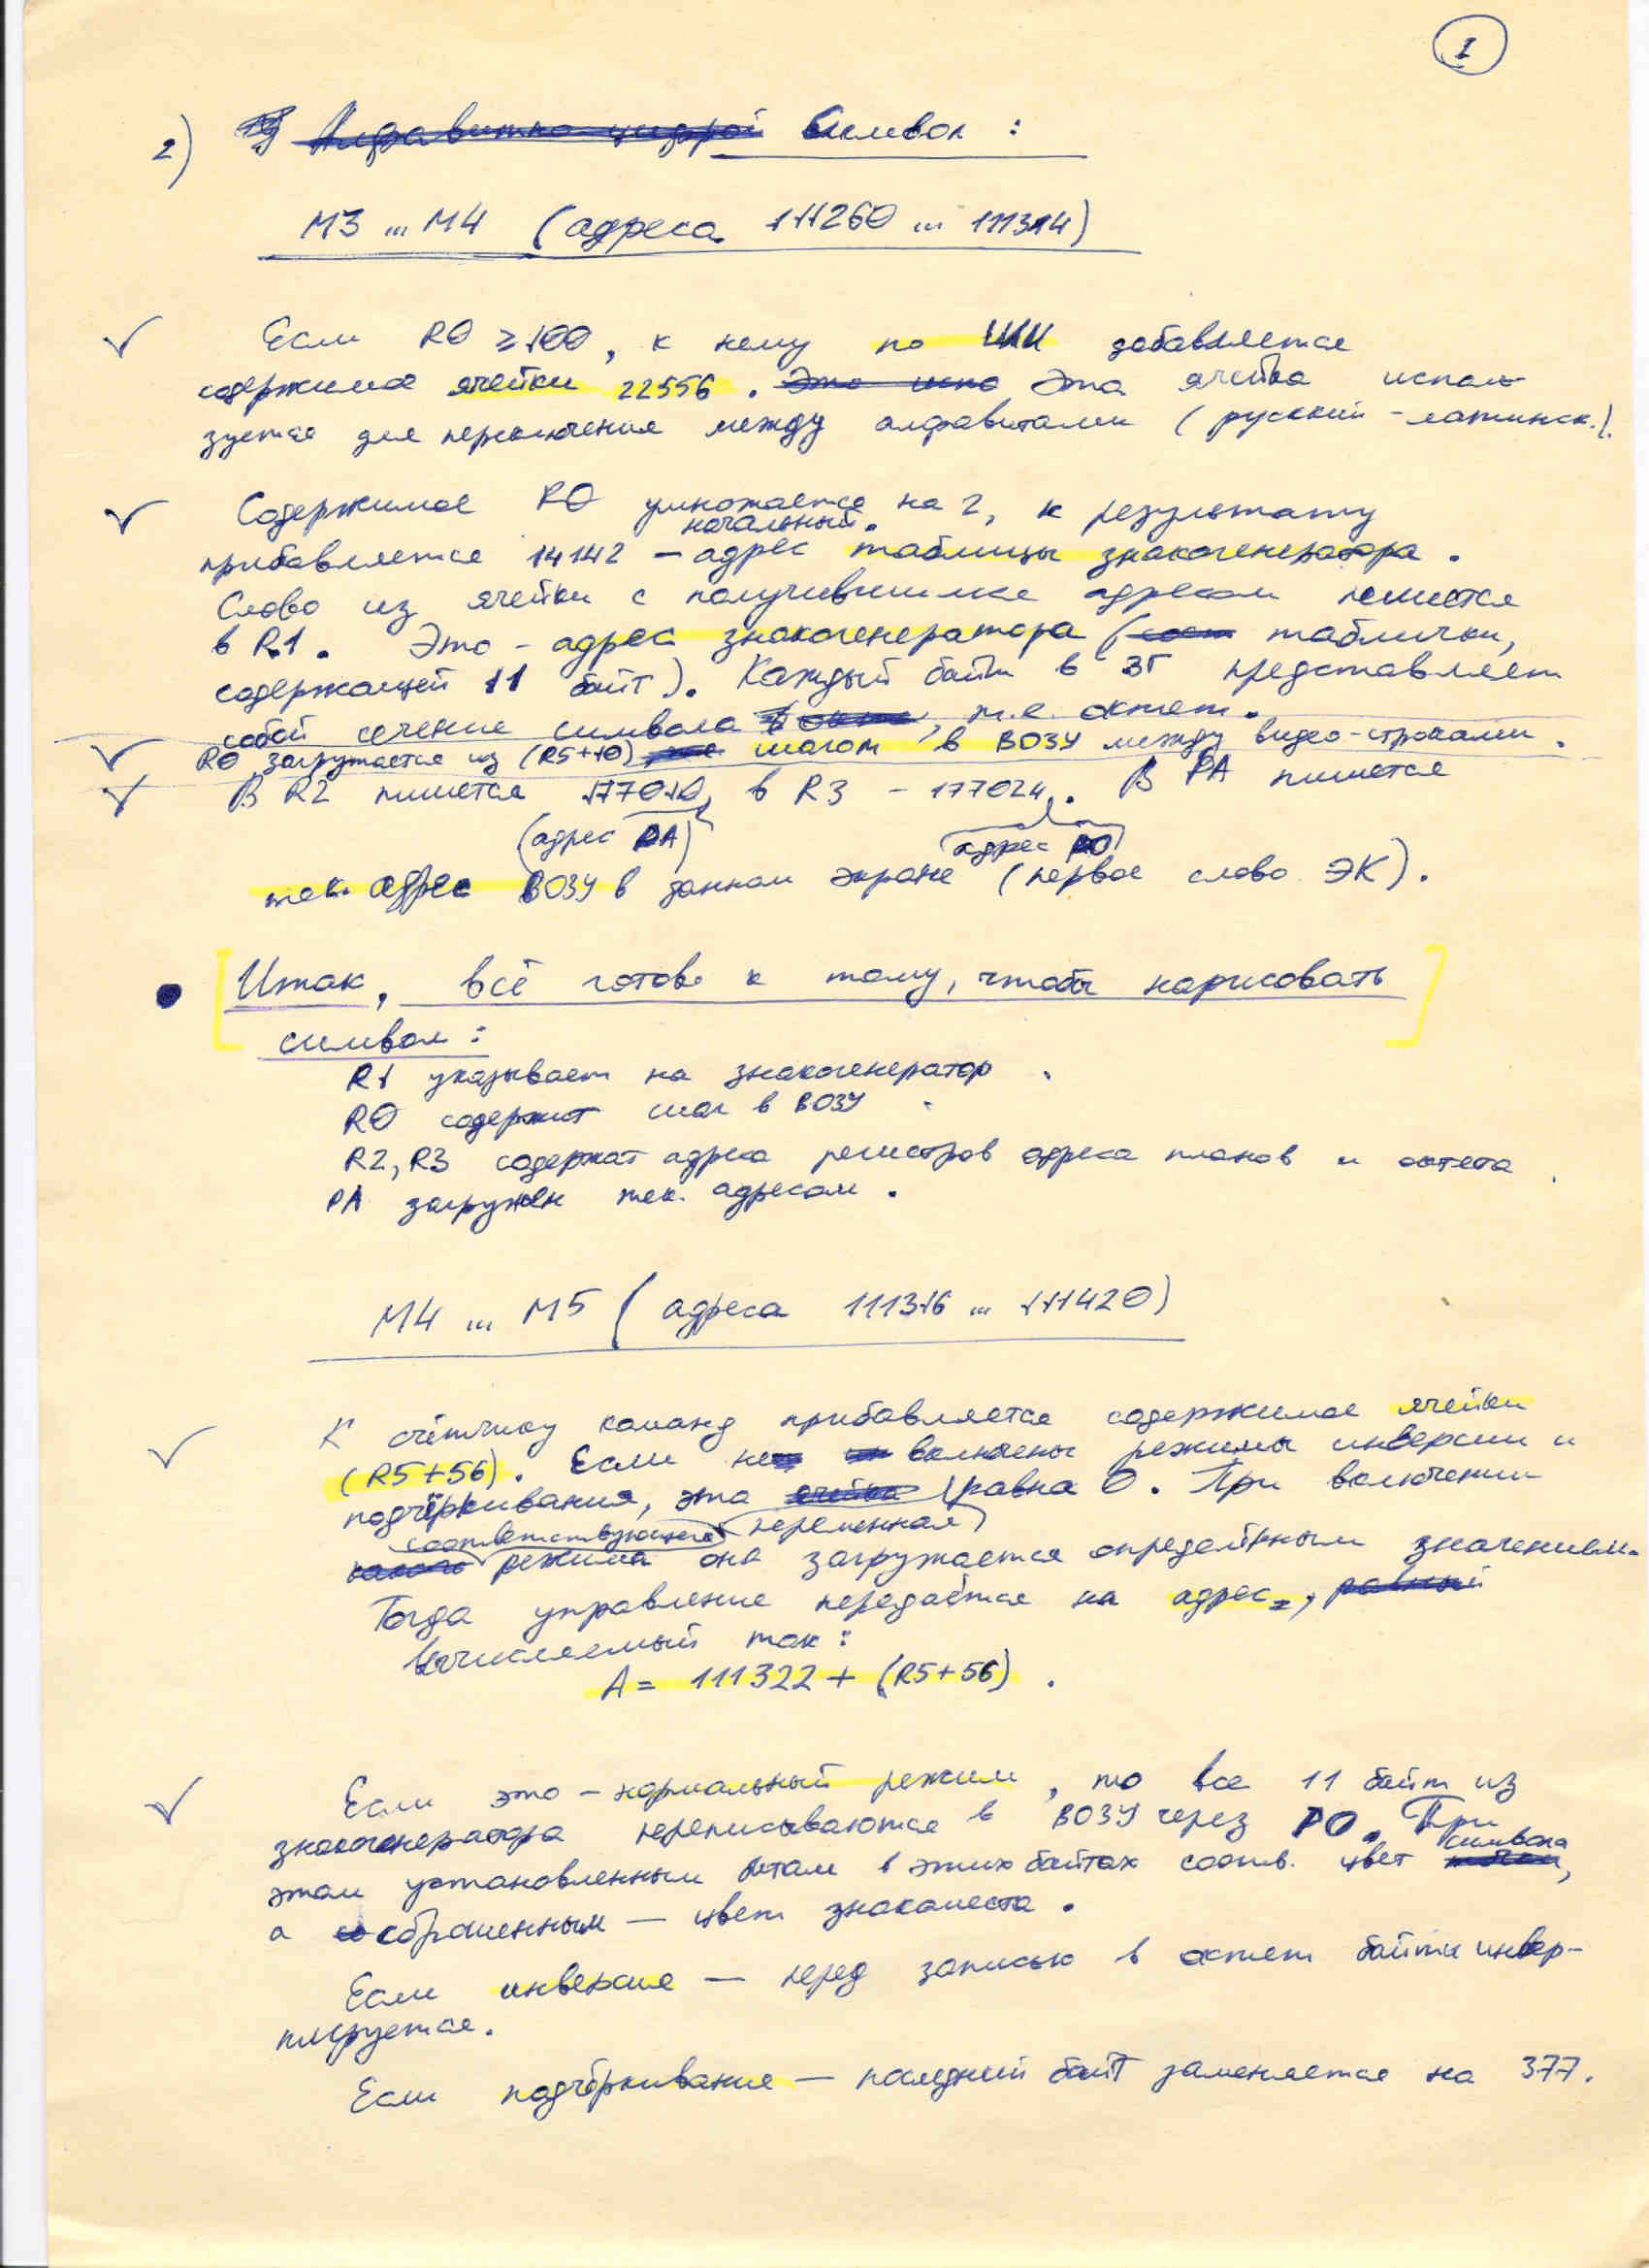 1
2) Алфавитно-цифрой Символ :
М3 ... М4 (адреса 111260 ... 111314)
Если R0 ≥ 100, к нему по ИИИ добавляется
содержимое ячейки 22556. Это испо Эта ячейка исполь-
зуется для переключения между алфавитами (русский - латинск.).
Содержимое R0 умножается на 2, к результату
начальный
прибавляется 14142 — адрес таблицы знакогенератора.
Слово из ячейки с получившимся адресом пишется
в R1. Это - адрес знакогенератора (сост таблички,
содержащей 11 байт). Каждый байт в ЗГ представляет
собой сечение символа, т.е. октет.
R0 загружается из (R5+10) шагом в ВОЗУ между видео-строками.
В R2 пишется 177010, в R3 - 177024. В РА пишется
(адрес РА) адрес РО
тек. адрес ВОЗУ в данном экране (первое слово ЭК).
Итак, всё готово к тому, чтобы нарисовать
символ:
R1 указывает на знакогенератор.
R0 содержит шаг в ВОЗУ.
R2, R3 содержат адреса регистров адреса планов и октета.
РА загружен тек. адресом.
М4 ... М5 (адреса 111316 ... 111420)
К счётчику команд прибавляется содержимое ячейки
(R5+56). Если не включены режимы инверсии и
подчёркивания, эта ячейка равна 0. При включении
соответствующего переменная
какого режима она загружается определённым значением.
Тогда управление передаётся на адрес, равный
вычисляемый так:
А = 111322 + (R5+56).
Если это - нормальный режим, то все 11 байт из
знакогенератора переписываются в ВОЗУ через РО. При
символа
этом установленным битам в этих байтах соотв. цвет точки,
а сброшенным — цвет знакоместа.
Если инверсия — перед записью в октет байты инвер-
тируется.
Если подчёркивание — последний байт заменяется на 377.